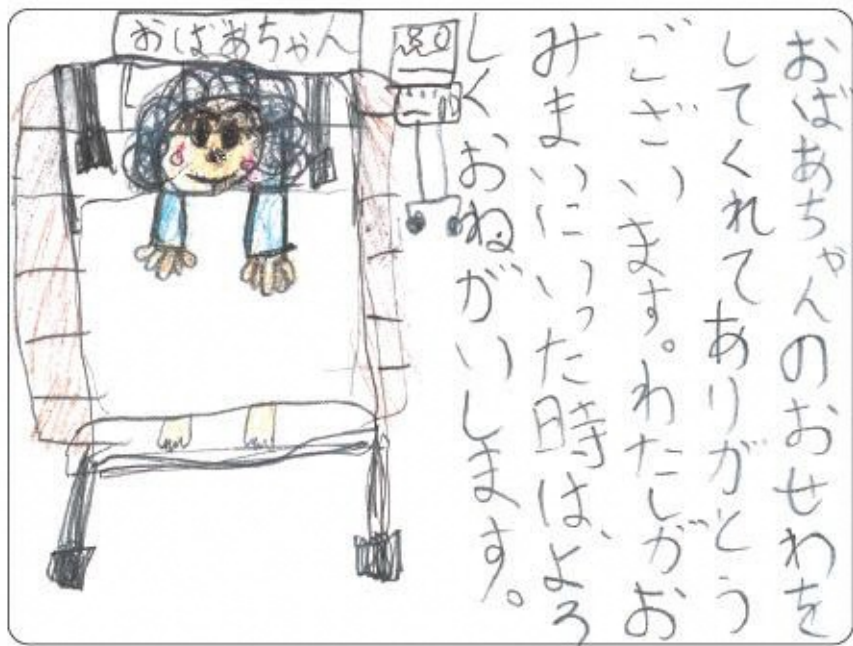 おばあちゃんのおせわを
してくれてありがとう
ございます。わたしがお
みまいにいった時は、よろ
しくおねがいします。
おばあちゃん